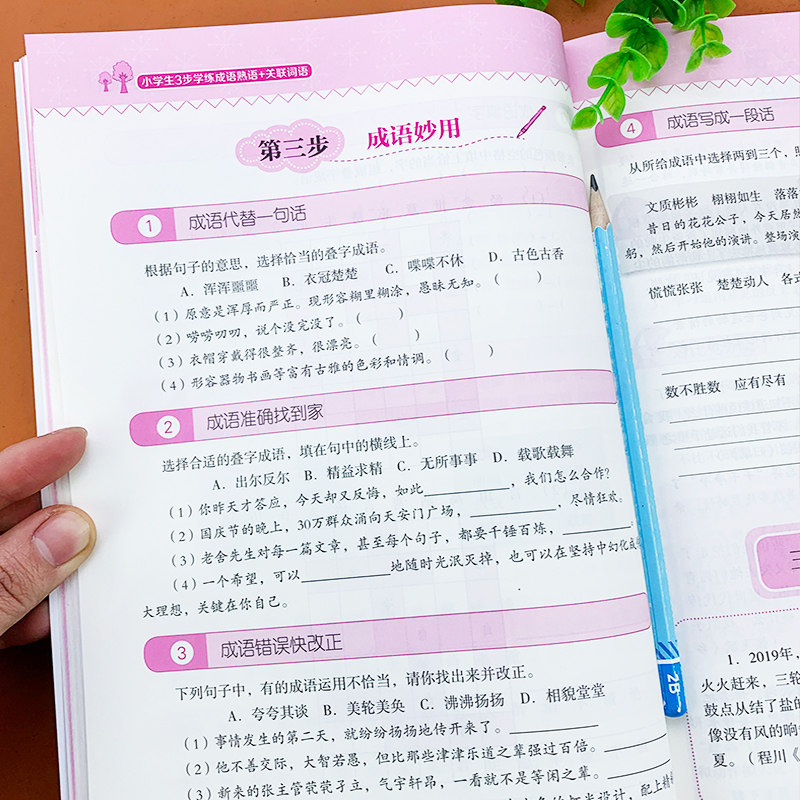 小学生3步学练成语熟语+关联词语
第三步 成语妙用
1 成语代替一句话
根据句子的意思，选择恰当的叠字成语。
A．浑浑噩噩 B．衣冠楚楚 C．喋喋不休 D．古色古香
（1）原意是浑厚而严正。现形容糊里糊涂，愚昧无知。（ ）
（2）唠唠叨叨，说个没完没了。（ ）
（3）衣帽穿戴得很整齐，很漂亮。（ ）
（4）形容器物书画等富有古雅的色彩和情调。（ ）
2 成语准确找到家
选择合适的叠字成语，填在句中的横线上。
A．出尔反尔 B．精益求精 C．无所事事 D．载歌载舞
（1）你昨天才答应，今天却又反悔，如此________，我们怎么合作？
（2）国庆节的晚上，30万群众涌向天安门广场，________，尽情狂欢。
（3）老舍先生对每一篇文章，甚至每个句子，都要千锤百炼，________。
（4）一个希望，可以________地随时光泯灭掉，也可以在坚持中幻化成
大理想，关键在你自己。
3 成语错误快改正
下列句子中，有的成语运用不恰当，请你找出来并改正。
A．夸夸其谈 B．美轮美奂 C．沸沸扬扬 D．相貌堂堂
（1）事情发生的第二天，就纷纷扬扬地传开来了。________
（2）他不善交际，大智若愚，但比那些津津乐道之辈强过百倍。________
（3）新来的张主管茕茕孑立，气宇轩昂，一看就不是等闲之辈。________
设计，配上精
4 成语写成一段话
从所给成语中选择两到三个，照
文质彬彬 栩栩如生 落落
昔日的花花公子，今天居然
躬，然后开始他的演讲。整场演
慌慌张张 楚楚动人 各式
数不胜数 应有尽有
三
1．2019年，
火火赶来，三轮
鼓点从结了盐的
像没有风的晌
夏。（程川《
2B